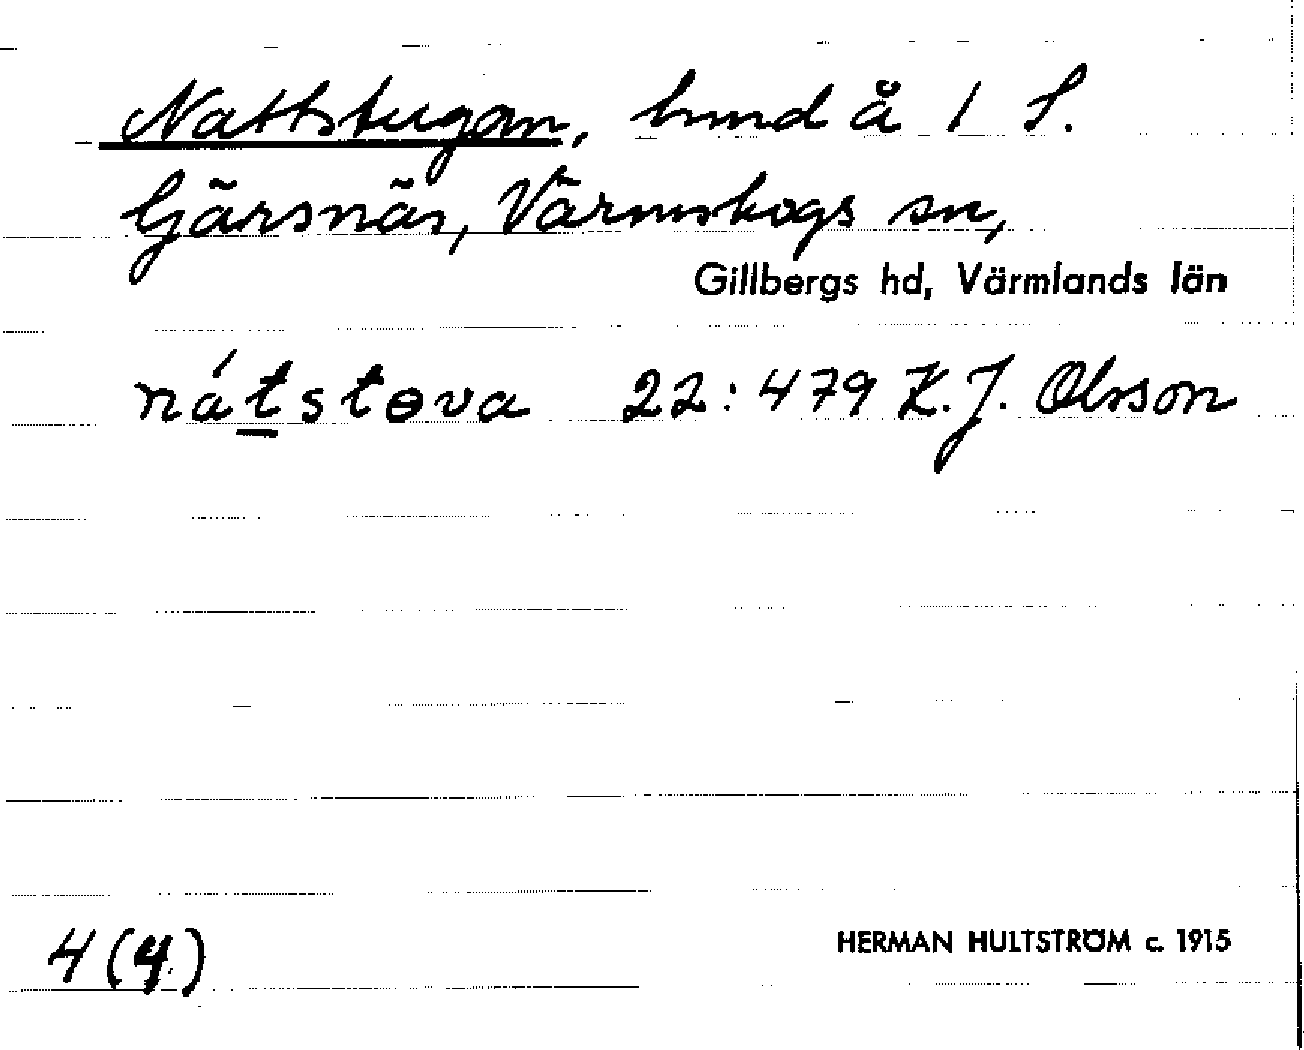 Nattstugan, hmd å 1 S.
Gärsnäs, Värmskogs sn,
Gillbergs hd, Värmlands län
nátstɵva 22:479 K.J. Olsson
4 (4.)
HERMAN HULTSTRÖM c. 1915